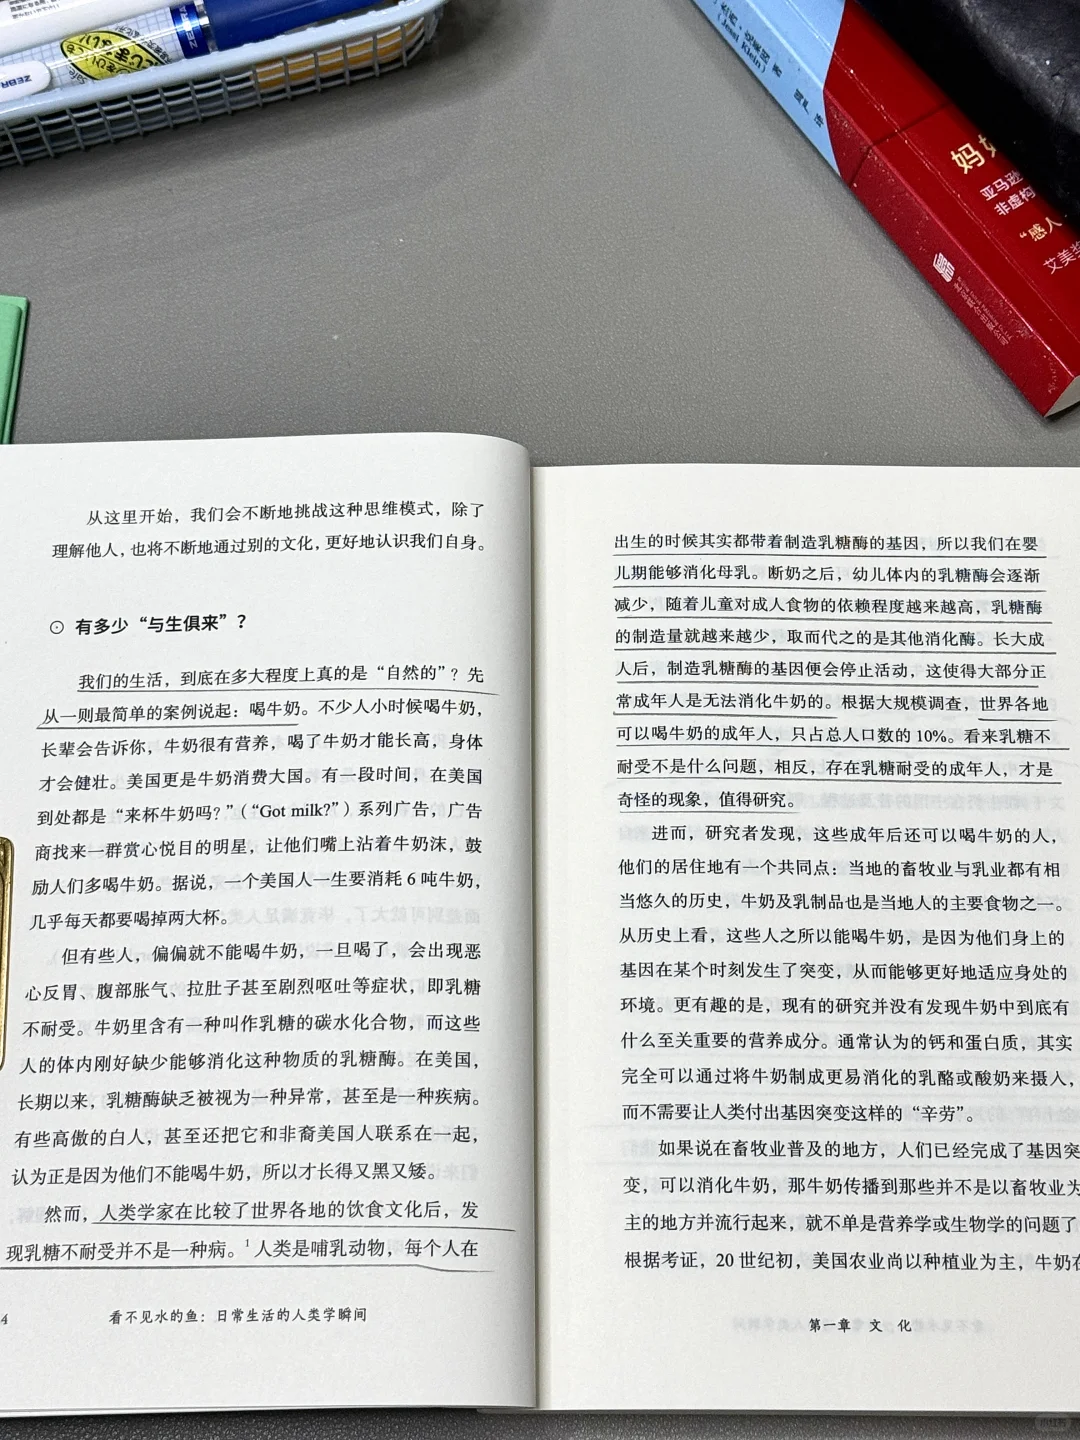 ZEBRA
ZEBRA
(Jessi Klein) 著
亚马逊
非虚构
“感人
艾美奖
从这里开始，我们会不断地挑战这种思维模式，除了
理解他人，也将不断地通过别的文化，更好地认识我们自身。
⊙ 有多少“与生俱来”？
我们的生活，到底在多大程度上真的是“自然的”？先
从一则最简单的案例说起：喝牛奶。不少人小时候喝牛奶，
长辈会告诉你，牛奶很有营养，喝了牛奶才能长高，身体
才会健壮。美国更是牛奶消费大国。有一段时间，在美国
到处都是“来杯牛奶吗？”（“Got milk?”）系列广告，广告
商找来一群赏心悦目的明星，让他们嘴上沾着牛奶沫，鼓
励人们多喝牛奶。据说，一个美国人一生要消耗 6 吨牛奶，
几乎每天都要喝掉两大杯。
但有些人，偏偏就不能喝牛奶，一旦喝了，会出现恶
心反胃、腹部胀气、拉肚子甚至剧烈呕吐等症状，即乳糖
不耐受。牛奶里含有一种叫作乳糖的碳水化合物，而这些
人的体内刚好缺少能够消化这种物质的乳糖酶。在美国，
长期以来，乳糖酶缺乏被视为一种异常，甚至是一种疾病。
有些高傲的白人，甚至还把它和非裔美国人联系在一起，
认为正是因为他们不能喝牛奶，所以才长得又黑又矮。
然而，人类学家在比较了世界各地的饮食文化后，发
现乳糖不耐受并不是一种病。1 人类是哺乳动物，每个人在
4 看不见水的鱼：日常生活的人类学瞬间
出生的时候其实都带着制造乳糖酶的基因，所以我们在婴
儿期能够消化母乳。断奶之后，幼儿体内的乳糖酶会逐渐
减少，随着儿童对成人食物的依赖程度越来越高，乳糖酶
的制造量就越来越少，取而代之的是其他消化酶。长大成
人后，制造乳糖酶的基因便会停止活动，这使得大部分正
常成年人是无法消化牛奶的。根据大规模调查，世界各地
可以喝牛奶的成年人，只占总人口数的 10%。看来乳糖不
耐受不是什么问题，相反，存在乳糖耐受的成年人，才是
奇怪的现象，值得研究。
进而，研究者发现，这些成年后还可以喝牛奶的人，
他们的居住地有一个共同点：当地的畜牧业与乳业都有相
当悠久的历史，牛奶及乳制品也是当地人的主要食物之一。
从历史上看，这些人之所以能喝牛奶，是因为他们身上的
基因在某个时刻发生了突变，从而能够更好地适应身处的
环境。更有趣的是，现有的研究并没有发现牛奶中到底有
什么至关重要的营养成分。通常认为的钙和蛋白质，其实
完全可以通过将牛奶制成更易消化的乳酪或酸奶来摄入，
而不需要让人类付出基因突变这样的“辛劳”。
如果说在畜牧业普及的地方，人们已经完成了基因突
变，可以消化牛奶，那牛奶传播到那些并不是以畜牧业为
主的地方并流行起来，就不单是营养学或生物学的问题了
根据考证，20 世纪初，美国农业尚以种植业为主，牛奶在
第一章 文 化